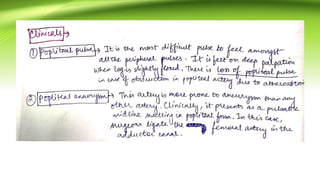 Clinicals →
① Popliteal pulse → It is the most difficult pulse to feel amongst
all the peripheral pulses. It is feel on deep palpation
when leg is slightly flexed. There is loss of popliteal pulse
in case of obstruction in popliteal artery due to atherosclerosis
② Popliteal aneurysm → This artery is more prone to aneurysm than any
other artery. Clinically, it presents as a pulsatile
midline swelling in popliteal fossa. In this case,
surgeons ligate the femoral artery in the
adductor canal.